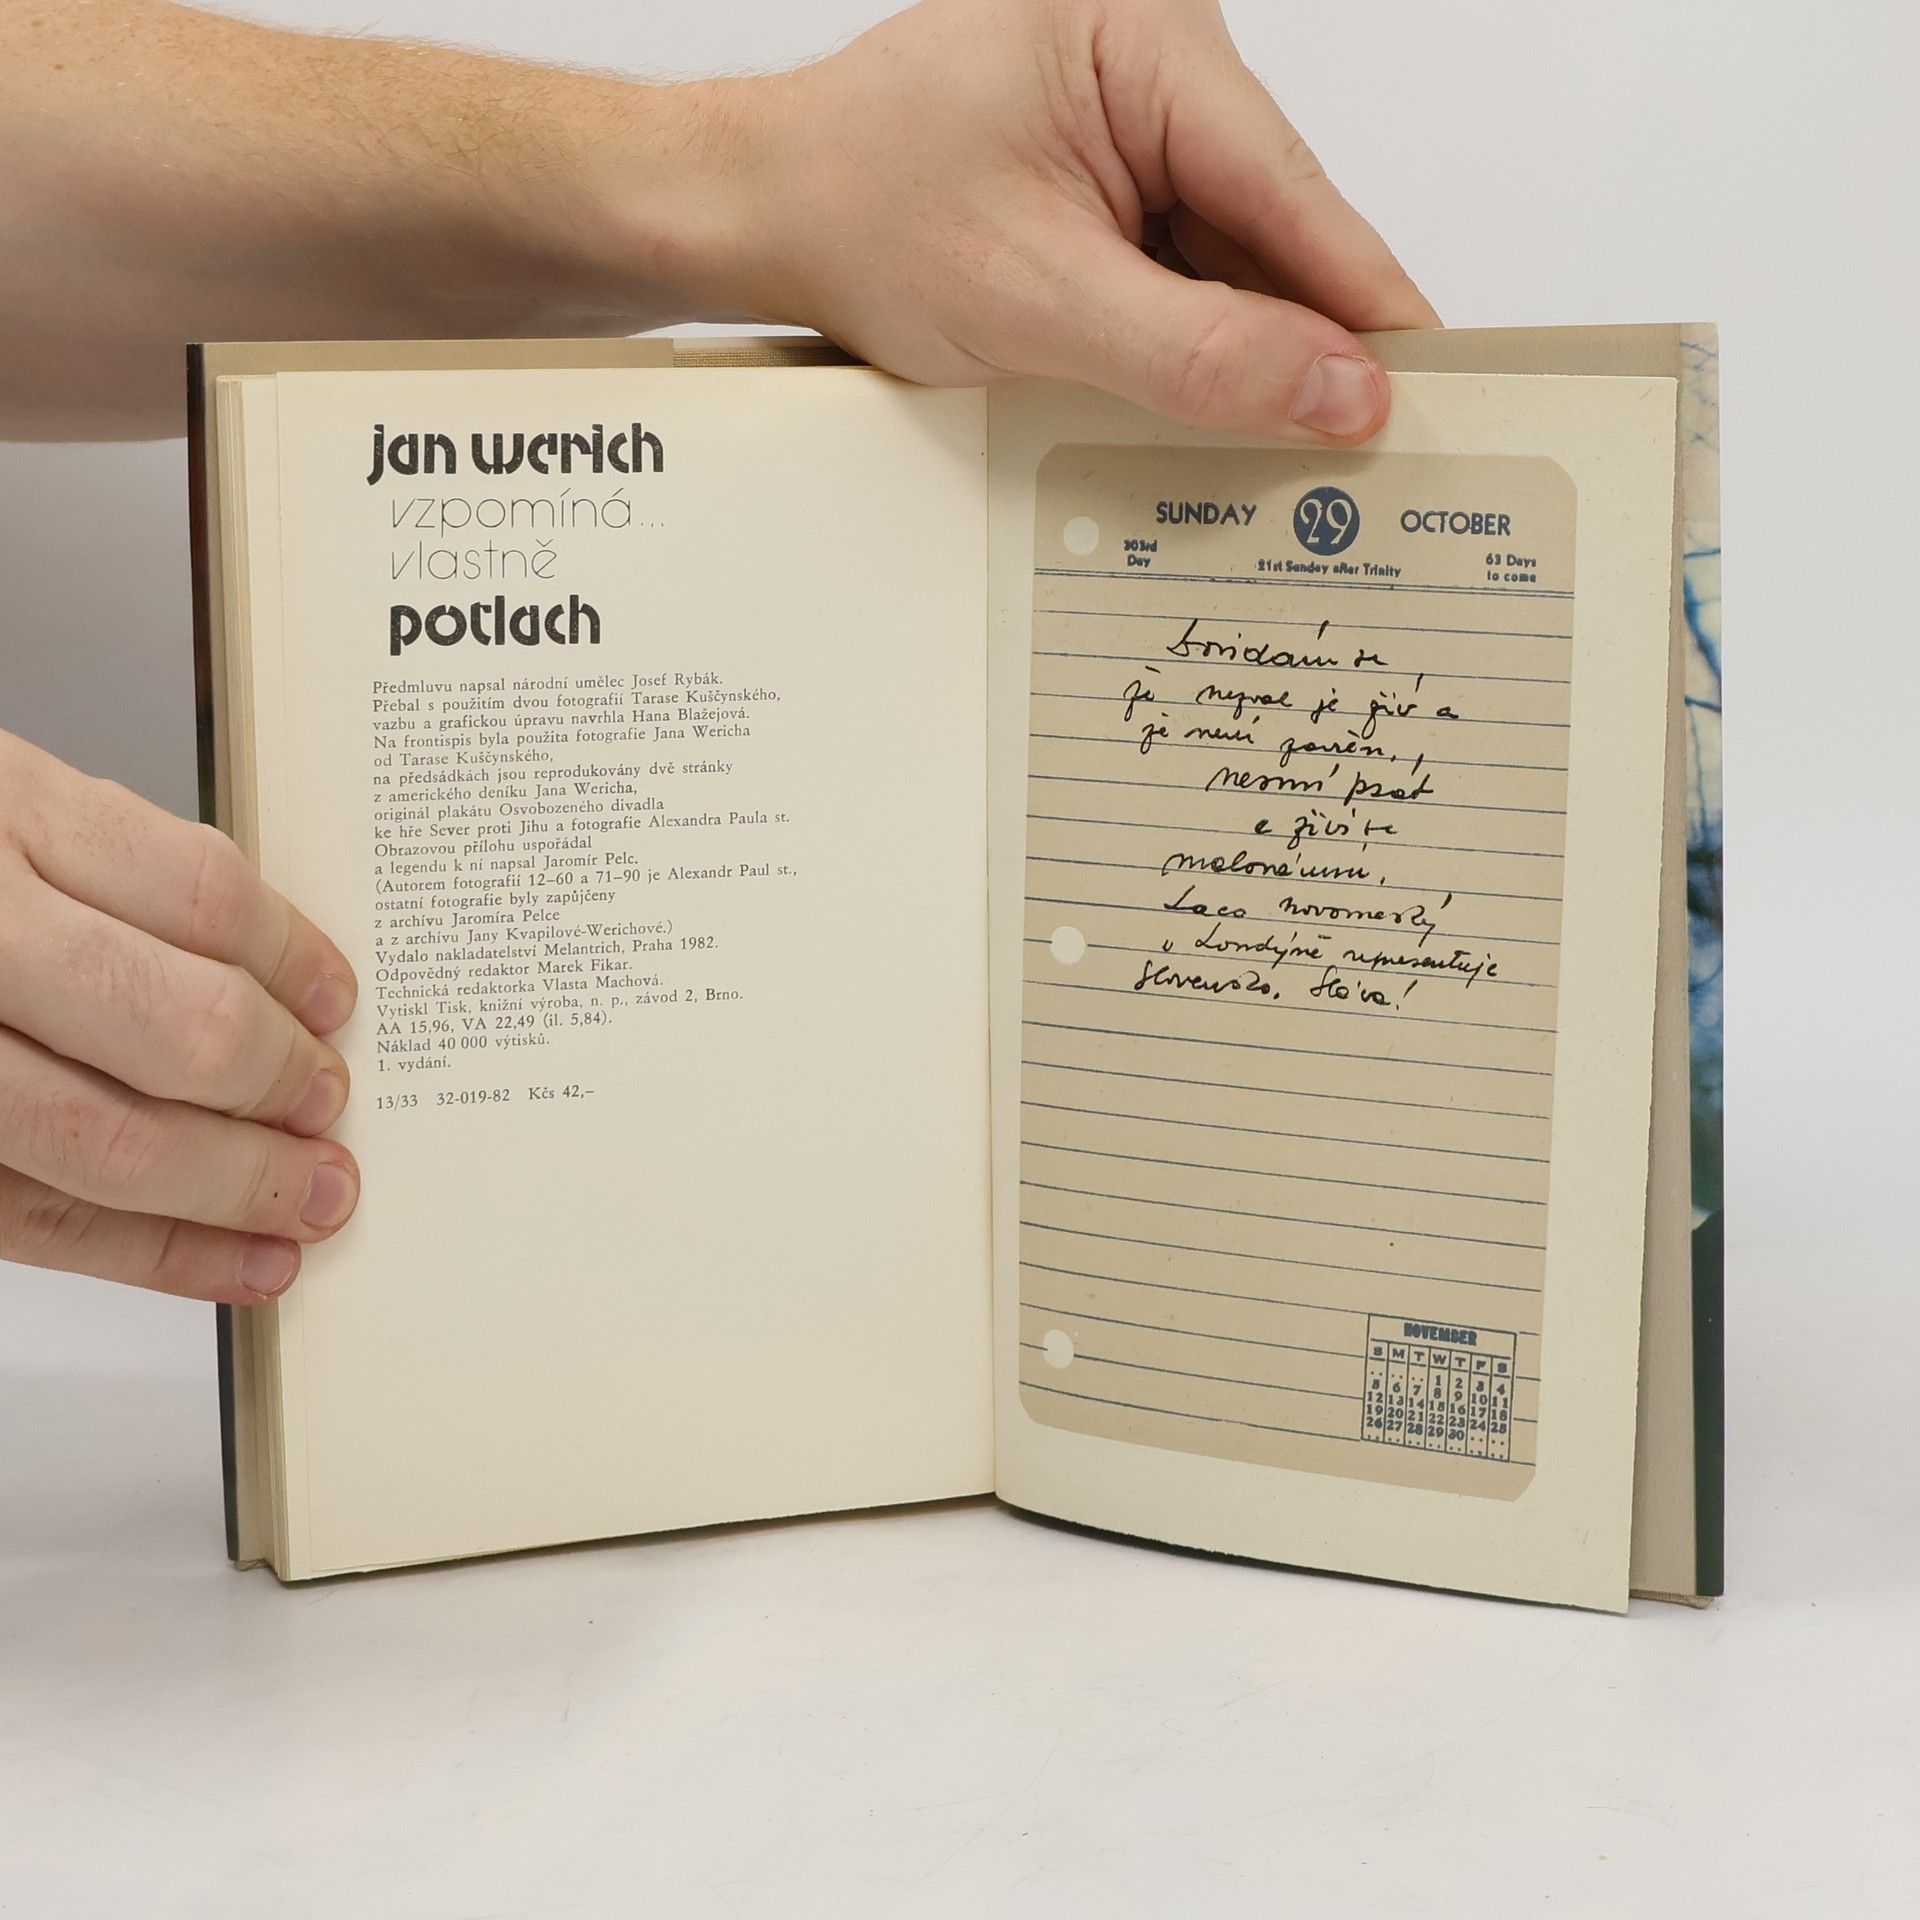 jan werich
vzpomíná...
vlastně
potlach
Předmluvu napsal národní umělec Josef Rybák.
Přebal s použitím dvou fotografií Tarase Kuščynského,
vazbu a grafickou úpravu navrhla Hana Blažejová.
Na frontispis byla použita fotografie Jana Wericha
od Tarase Kuščynského,
na předsádkách jsou reprodukovány dvě stránky
z amerického deníku Jana Wericha,
originál plakátu Osvobozeného divadla
ke hře Sever proti Jihu a fotografie Alexandra Paula st.
Obrazovou přílohu uspořádal
a legendu k ní napsal Jaromír Pelc.
(Autorem fotografií 12–60 a 71–90 je Alexandr Paul st.,
ostatní fotografie byly zapůjčeny
z archívu Jaromíra Pelce
a z archívu Jany Kvapilové-Werichové.)
Vydalo nakladatelství Melantrich, Praha 1982.
Odpovědný redaktor Marek Fikar.
Technická redaktorka Vlasta Machová.
Vytiskl Tisk, knižní výroba, n. p., závod 2, Brno.
AA 15,96, VA 22,49 (il. 5,84).
Náklad 40 000 výtisků.
1. vydání.
13/33 32-019-82 Kčs 42,–
SUNDAY 29 OCTOBER
303rd Day 21st Sunday after Trinity 63 Days to come
se
že nezval je živ a
že není zavřen,
nesmí psát
a živí se
malováním.
Laco Novomeský
v Londýně representuje
Slovensko. Sláva!
NOVEMBER
S M T W T F S
.. .. .. 1 2 3 4
5 6 7 8 9 10 11
12 13 14 15 16 17 18
19 20 21 22 23 24 25
26 27 28 29 30 .. ..